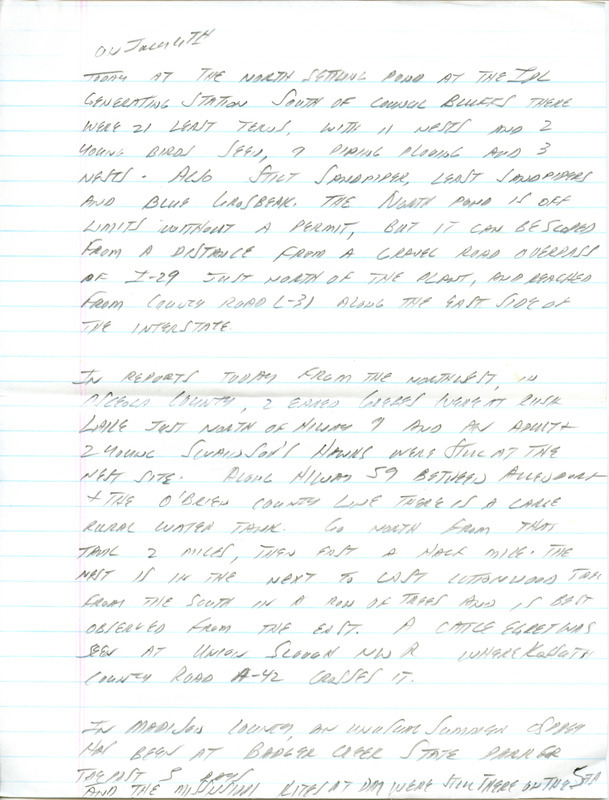 ON JULY 4TH
TODAY AT THE NORTH SETTLING POND AT THE IPL
GENERATING STATION SOUTH OF COUNCIL BLUFFS THERE
WERE 21 LEAST TERNS, WITH 11 NESTS AND 2
YOUNG BIRDS SEEN, 9 PIPING PLOVING AND 3
NESTS. ALSO STILT SANDPIPER, LEAST SANDPIPERS
AND BLUE GROSBEAK. THE NORTH POND IS OFF
LIMITS WITHOUT A PERMIT, BUT IT CAN BE SCOPED
FROM A DISTANCE FROM A GRAVEL ROAD OVERPASS
OF I-29 JUST NORTH OF THE PLANT, AND REACHED
FROM COUNTY ROAD L-31 ALONG THE EAST SIDE OF
THE INTERSTATE.
IN REPORTS TODAY FROM THE NORTHWEST, IN
OSCEOLA COUNTY, 2 EARED GREBES WERE AT RUSH
LAKE JUST NORTH OF HIWAY 9 AND AN ADULT +
2 YOUNG SWAINSON'S HAWKS WERE STILL AT THE
NEST SITE. ALONG HIWAY 59 BETWEEN ALLENDORF
+ THE O'BRIEN COUNTY LINE THERE IS A LARGE
RURAL WATER TANK. GO NORTH FROM THAT
TANK 2 MILES, THEN EAST A HALF MILE. THE
NEST IS IN THE NEXT TO LAST COTTONWOOD TREE
FROM THE SOUTH IN A ROW OF TREES AND IS BEST
OBSERVED FROM THE EAST. A CATTLE EGRET WAS
SEEN AT UNION SLOUGH NWR WHERE KOSSUTH
COUNTY ROAD A-42 CROSSES IT.
IN MADISON COUNTY, AN UNUSUAL SUMMER OSPREY
HAS BEEN AT BADGER CREEK STATE PARK FOR
THE PAST 3 DAYS
AND THE MISSISSIPPI KITES AT DM WERE STILL THERE ON THE 5TH